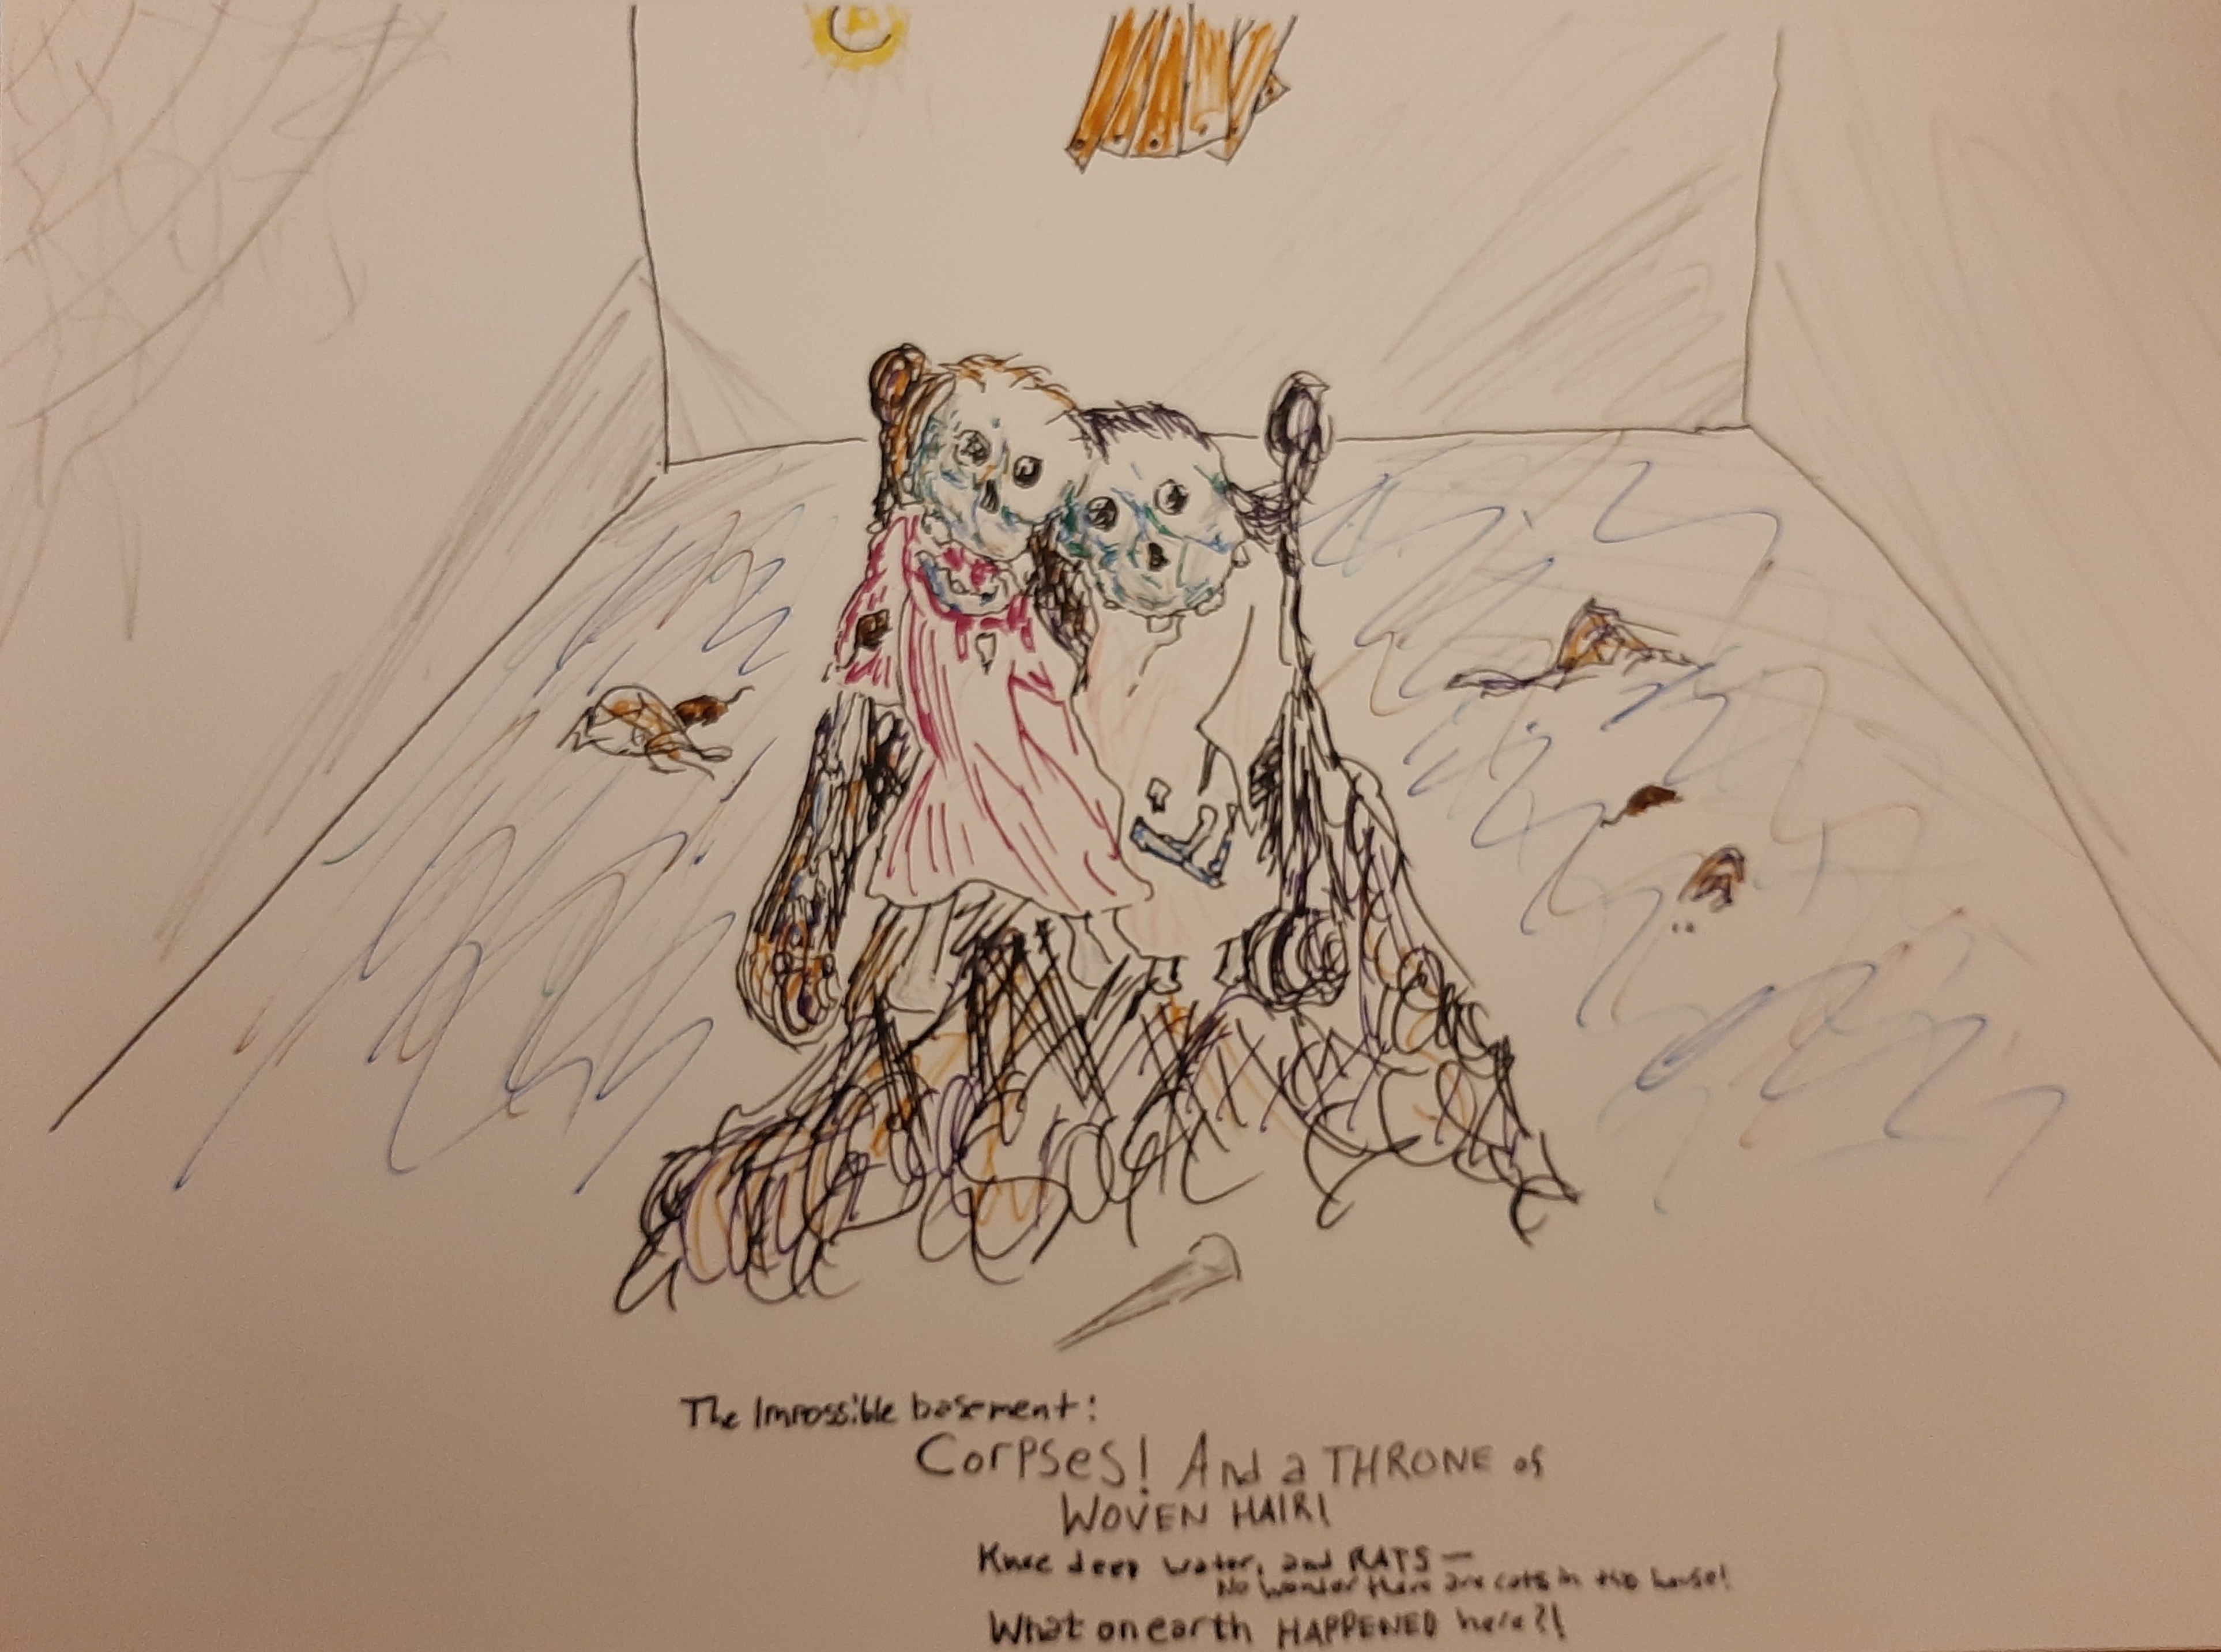 The Impossible basement:
Corpses! And a THRONE of
WOVEN HAIR!
Knee deep water, and RATS —
No wonder there are cats in this house!
What on earth HAPPENED here?!